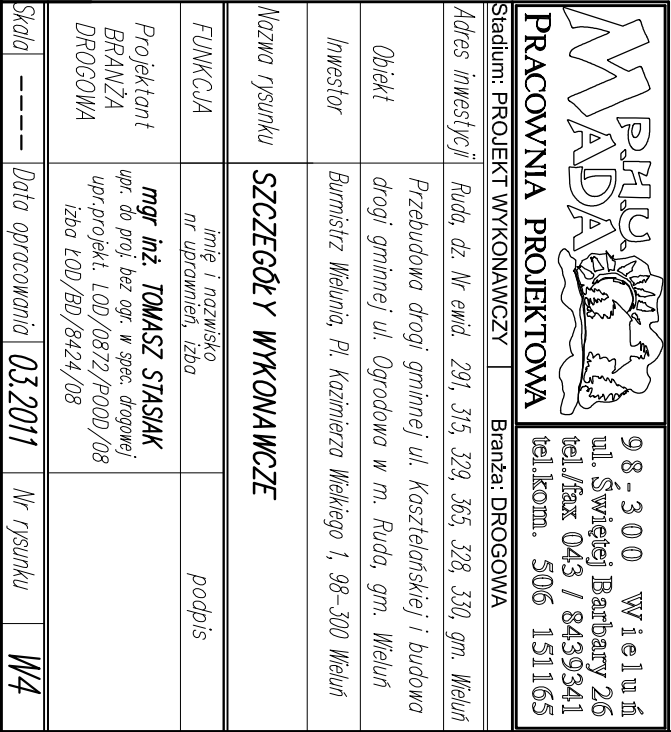 P.H.U.
MADA
PRACOWNIA PROJEKTOWA
98-300 Wieluń
ul. Świętej Barbary 26
tel./fax 043 / 8439341
tel.kom. 506 151165
Stadium: PROJEKT WYKONAWCZY
Branża: DROGOWA
Adres inwestycji
Ruda, dz. Nr ewid. 291, 315, 329, 365, 328, 330, gm. Wieluń
Obiekt
Przebudowa drogi gminnej ul. Kasztelańskiej i budowa
drogi gminnej ul. Ogrodowa w m. Ruda, gm. Wieluń
Inwestor
Burmistrz Wielunia, Pl. Kazimierza Wielkiego 1, 98-300 Wieluń
Nazwa rysunku
SZCZEGÓŁY WYKONAWCZE
FUNKCJA
imię i nazwisko
nr uprawnień, izba
podpis
Projektant
BRANŻA
DROGOWA
mgr inż. TOMASZ STASIAK
upr. do proj. bez ogr. w spec. drogowej
upr.projekt. LOD/0872/POOD/08
izba ŁOD/BD/8424/08
Skala
----
Data opracowania
03.2011
Nr rysunku
W4